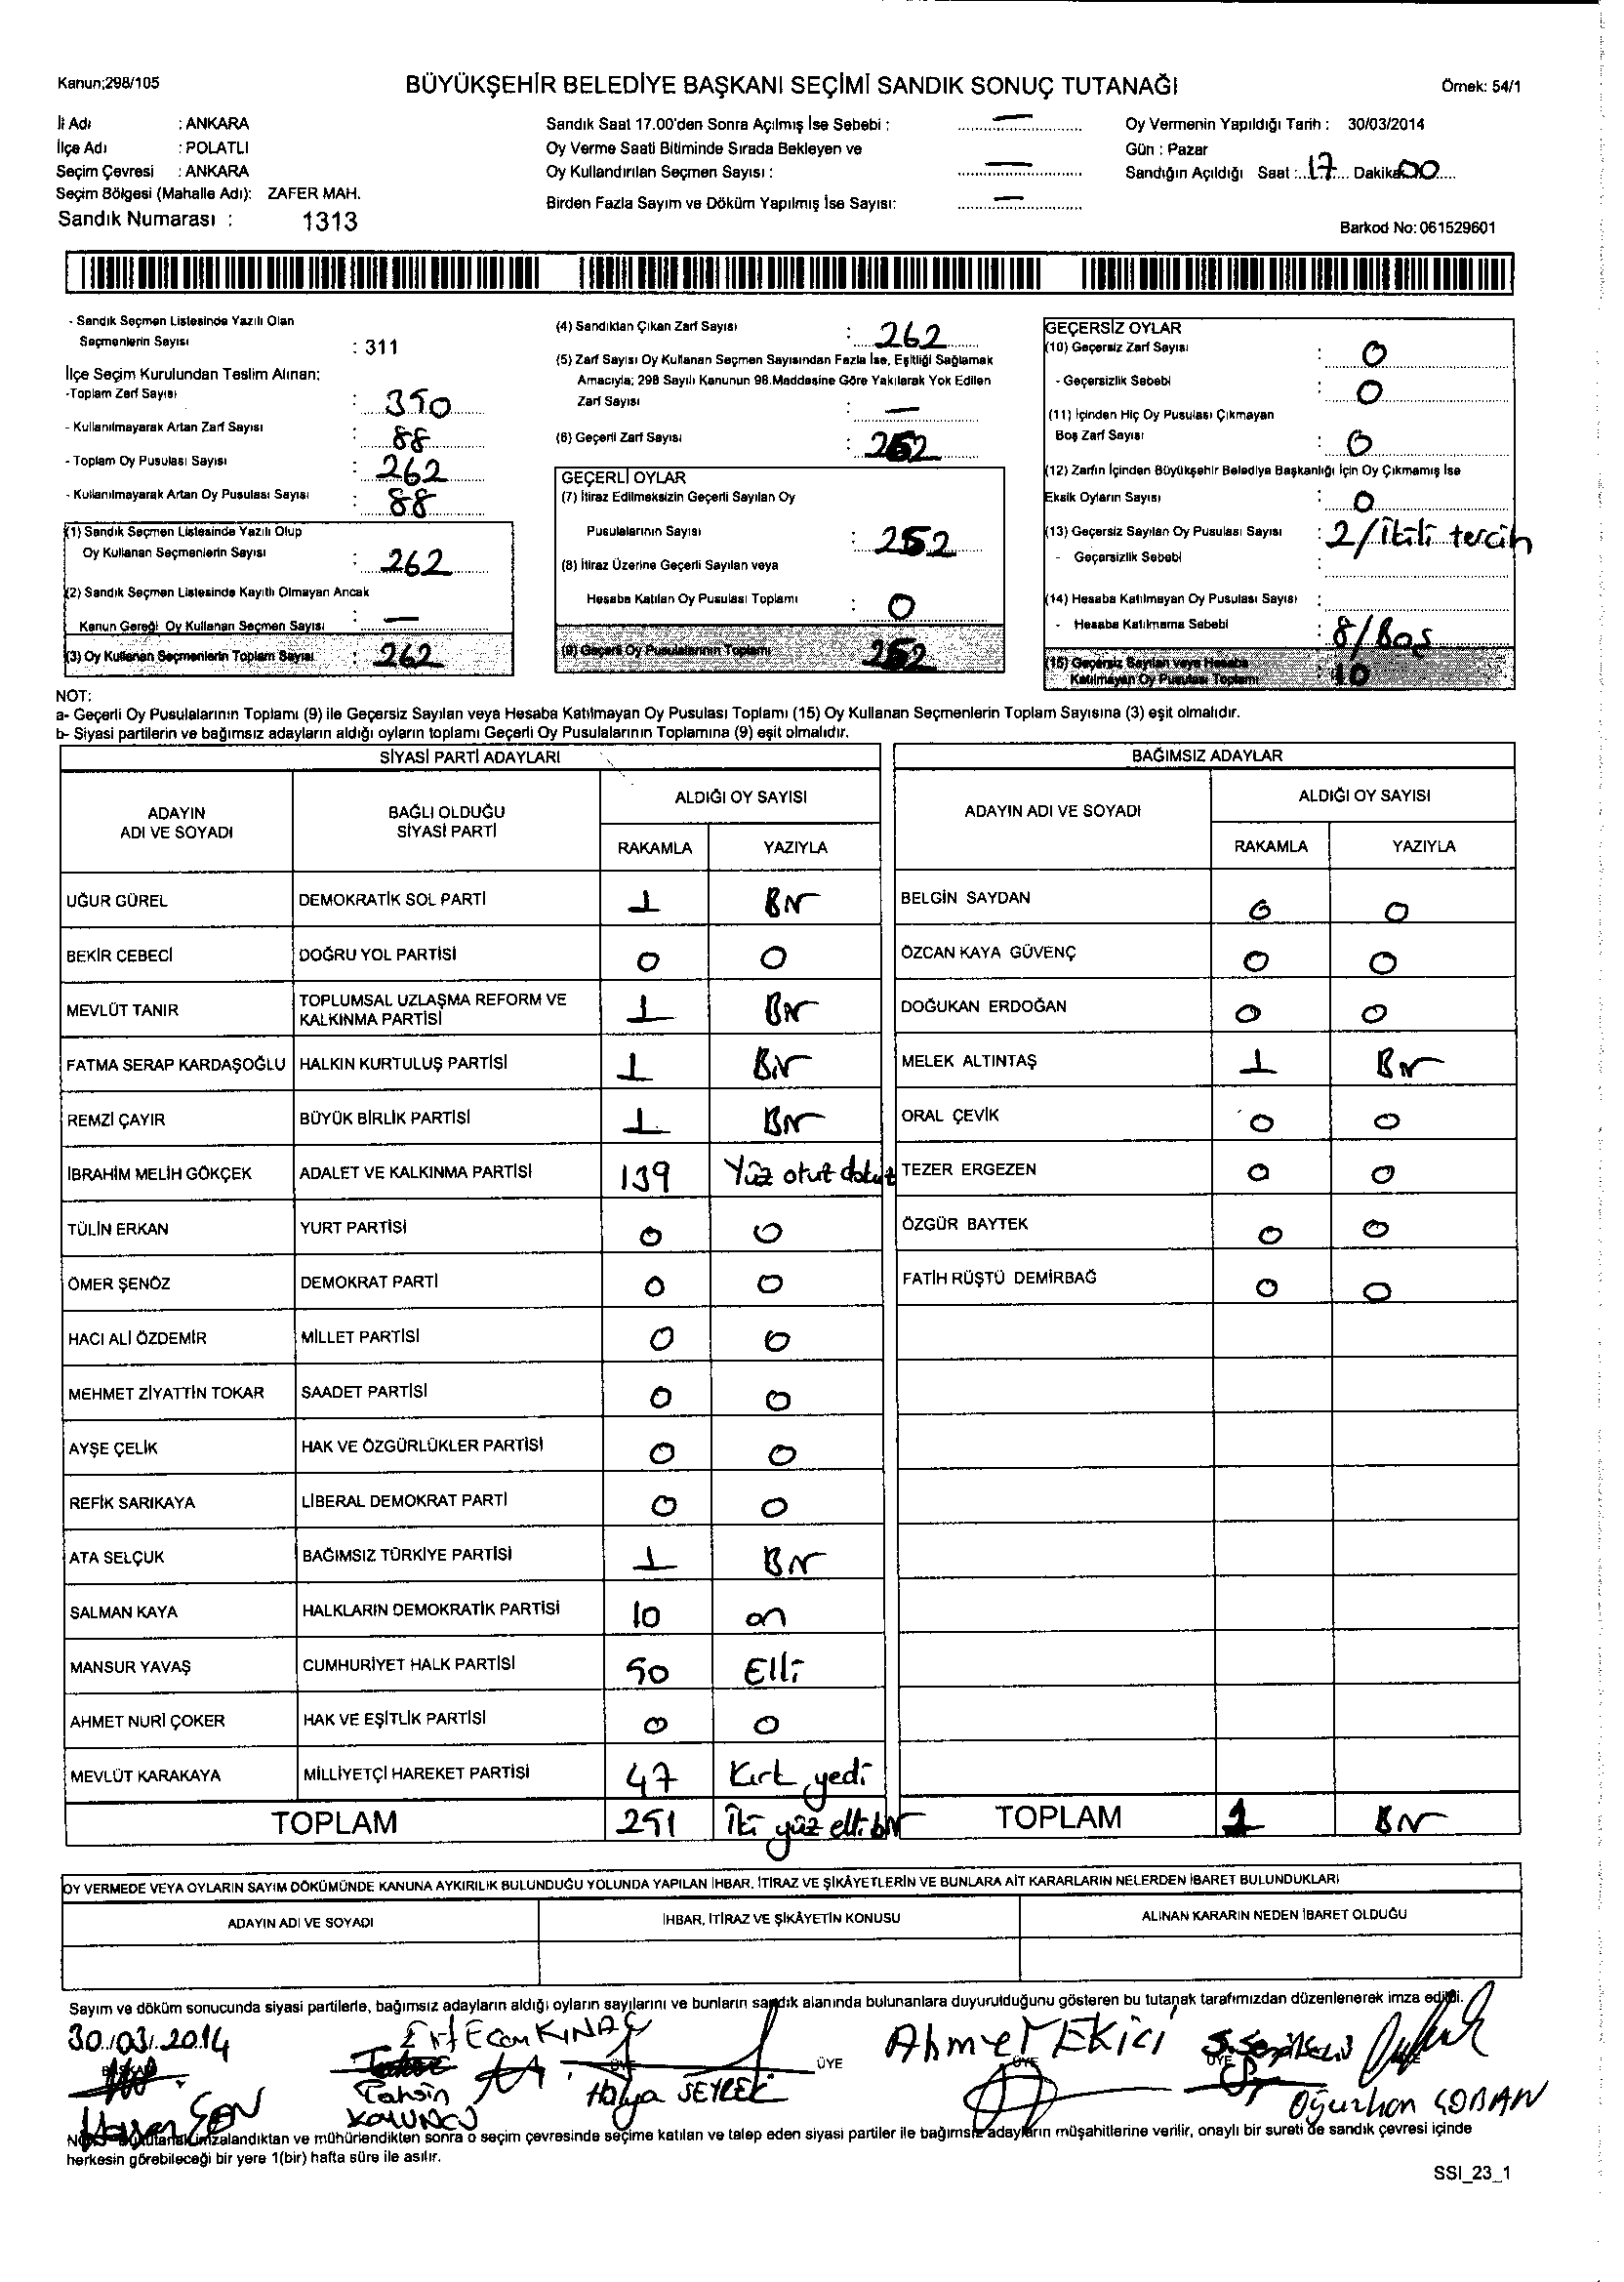 Kanun;298/105
BÜYÜKŞEHİR BELEDİYE BAŞKANI SEÇİMİ SANDIK SONUÇ TUTANAĞI
Örnek: 54/1
İl Adı : ANKARA
İlçe Adı : POLATLI
Seçim Çevresi : ANKARA
Seçim Bölgesi (Mahalle Adı): ZAFER MAH.
Sandık Numarası : 1313
Sandık Saat 17.00'den Sonra Açılmış İse Sebebi : —
Oy Verme Saati Bitiminde Sırada Bekleyen ve
Oy Kullandırılan Seçmen Sayısı : —
Birden Fazla Sayım ve Döküm Yapılmış İse Sayısı: —
Oy Vermenin Yapıldığı Tarih : 30/03/2014
Gün : Pazar
Sandığın Açıldığı Saat : 17 Dakika 00
Barkod No: 061529601
- Sandık Seçmen Listesinde Yazılı Olan
Seçmenlerin Sayısı : 311
İlçe Seçim Kurulundan Teslim Alınan:
-Toplam Zarf Sayısı : 350
- Kullanılmayarak Artan Zarf Sayısı : 88
- Toplam Oy Pusulası Sayısı : 262
- Kullanılmayarak Artan Oy Pusulası Sayısı : 88
(1) Sandık Seçmen Listesinde Yazılı Olup
Oy Kullanan Seçmenlerin Sayısı : 262
(2) Sandık Seçmen Listesinde Kayıtlı Olmayan Ancak
Kanun Gereği Oy Kullanan Seçmen Sayısı : —
(3) Oy Kullanan Seçmenlerin Toplam Sayısı : 262
(4) Sandıktan Çıkan Zarf Sayısı : 262
(5) Zarf Sayısı Oy Kullanan Seçmen Sayısından Fazla İse, Eşitliği Sağlamak
Amacıyla; 298 Sayılı Kanunun 98.Maddesine Göre Yakılarak Yok Edilen
Zarf Sayısı : —
(6) Geçerli Zarf Sayısı : 262
GEÇERLİ OYLAR
(7) İtiraz Edilmeksizin Geçerli Sayılan Oy
Pusulalarının Sayısı : 252
(8) İtiraz Üzerine Geçerli Sayılan veya
Hesaba Katılan Oy Pusulası Toplamı : 0
(9) Geçerli Oy Pusulalarının Toplamı : 252
GEÇERSİZ OYLAR
(10) Geçersiz Zarf Sayısı : 0
- Geçersizlik Sebebi : 0
(11) İçinden Hiç Oy Pusulası Çıkmayan
Boş Zarf Sayısı : 0
(12) Zarfın İçinden Büyükşehir Belediye Başkanlığı İçin Oy Çıkmamış İse
Eksik Oyların Sayısı : 0
(13) Geçersiz Sayılan Oy Pusulası Sayısı : 2/İkili tercih
- Geçersizlik Sebebi
(14) Hesaba Katılmayan Oy Pusulası Sayısı :
- Hesaba Katılmama Sebebi : 8/Boş
(15) Geçersiz Sayılan veya Hesaba
Katılmayan Oy Pusulası Toplamı : 10
NOT:
a- Geçerli Oy Pusulalarının Toplamı (9) ile Geçersiz Sayılan veya Hesaba Katılmayan Oy Pusulası Toplamı (15) Oy Kullanan Seçmenlerin Toplam Sayısına (3) eşit olmalıdır.
b- Siyasi partilerin ve bağımsız adayların aldığı oyların toplamı Geçerli Oy Pusulalarının Toplamına (9) eşit olmalıdır.
SİYASİ PARTİ ADAYLARI
ADAYIN ADI VE SOYADI BAĞLI OLDUĞU SİYASİ PARTİ ALDIĞI OY SAYISI
RAKAMLA YAZIYLA
UĞUR GÜREL DEMOKRATİK SOL PARTİ 1 Bir
BEKİR CEBECİ DOĞRU YOL PARTİSİ 0 0
MEVLÜT TANIR TOPLUMSAL UZLAŞMA REFORM VE KALKINMA PARTİSİ 1 Bir
FATMA SERAP KARDAŞOĞLU HALKIN KURTULUŞ PARTİSİ 1 Bir
REMZİ ÇAYIR BÜYÜK BİRLİK PARTİSİ 1 Bir
İBRAHİM MELİH GÖKÇEK ADALET VE KALKINMA PARTİSİ 139 Yüz otuz dokuz
TÜLİN ERKAN YURT PARTİSİ 0 0
ÖMER ŞENÖZ DEMOKRAT PARTİ 0 0
HACI ALİ ÖZDEMİR MİLLET PARTİSİ 0 0
MEHMET ZİYATTİN TOKAR SAADET PARTİSİ 0 0
AYŞE ÇELİK HAK VE ÖZGÜRLÜKLER PARTİSİ 0 0
REFİK SARIKAYA LİBERAL DEMOKRAT PARTİ 0 0
ATA SELÇUK BAĞIMSIZ TÜRKİYE PARTİSİ 1 Bir
SALMAN KAYA HALKLARIN DEMOKRATİK PARTİSİ 10 on
MANSUR YAVAŞ CUMHURİYET HALK PARTİSİ 50 Elli
AHMET NURİ ÇOKER HAK VE EŞİTLİK PARTİSİ 0 0
MEVLÜT KARAKAYA MİLLİYETÇİ HAREKET PARTİSİ 47 Kırk yedi
TOPLAM 251 İki yüz elli bir
BAĞIMSIZ ADAYLAR
ADAYIN ADI VE SOYADI ALDIĞI OY SAYISI
RAKAMLA YAZIYLA
BELGİN SAYDAN 0 0
ÖZCAN KAYA GÜVENÇ 0 0
DOĞUKAN ERDOĞAN 0 0
MELEK ALTINTAŞ 1 Bir
ORAL ÇEVİK 0 0
TEZER ERGEZEN 0 0
ÖZGÜR BAYTEK 0 0
FATİH RÜŞTÜ DEMİRBAĞ 0 0
TOPLAM 1 Bir
OY VERMEDE VEYA OYLARIN SAYIM DÖKÜMÜNDE KANUNA AYKIRILIK BULUNDUĞU YOLUNDA YAPILAN İHBAR, İTİRAZ VE ŞİKÂYETLERİN VE BUNLARA AİT KARARLARIN NELERDEN İBARET BULUNDUKLARI
ADAYIN ADI VE SOYADI İHBAR, İTİRAZ VE ŞİKÂYETİN KONUSU ALINAN KARARIN NEDEN İBARET OLDUĞU
Sayım ve döküm sonucunda siyasi partilerle, bağımsız adayların aldığı oyların sayılarını ve bunların sandık alanında bulunanlara duyurulduğunu gösteren bu tutanak tarafımızdan düzenlenerek imza edildi.
30/03/2014
KINAÇ
Ahmet EKİCİ
BAŞKAN ÜYE ÜYE ÜYE ÜYE
Tahsin KORUNCU
Hülya SEYREK
Oğuzhan ÇOBAN
Hasan ŞEN
NOT: Bu tutanak imzalandıktan ve mühürlendikten sonra o seçim çevresinde seçime katılan ve talep eden siyasi partiler ile bağımsız adayların müşahitlerine verilir, onaylı bir sureti de sandık çevresi içinde
herkesin görebileceği bir yere 1(bir) hafta süre ile asılır.
SSI_23_1